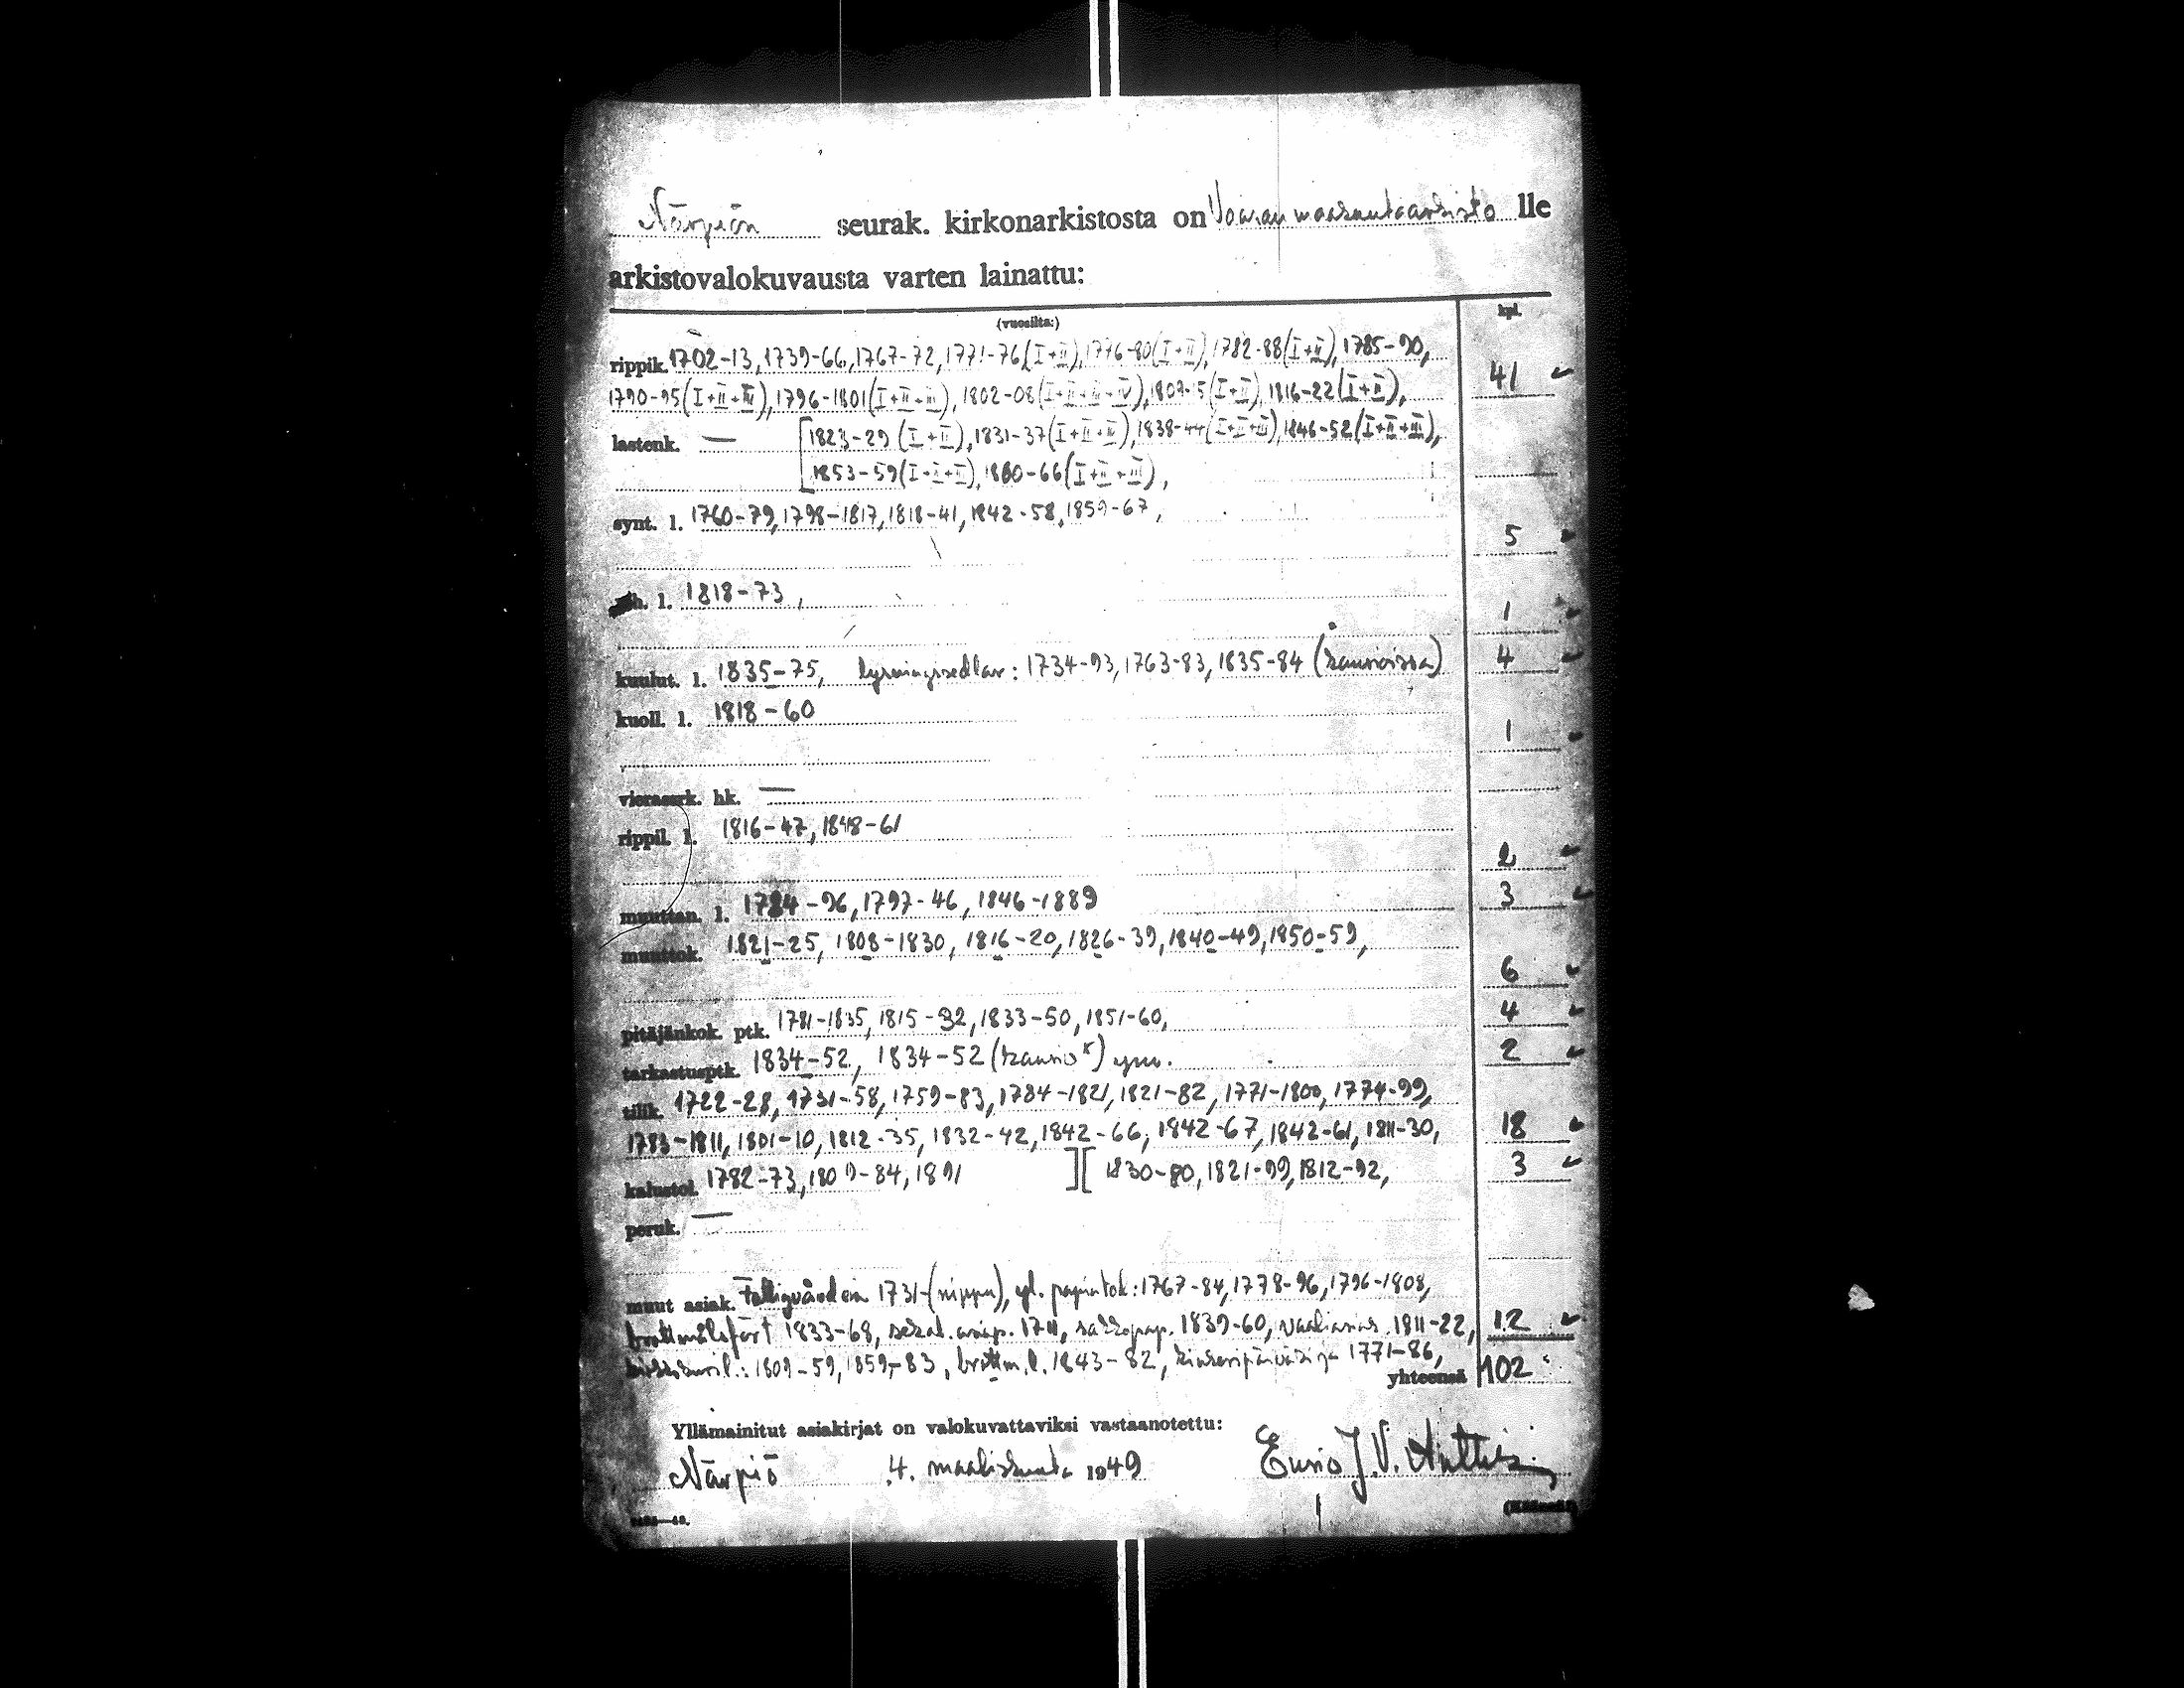 Närpiön seurak. kirkonarkistosta on Vaasan maakuntaarkisto lle
arkistovalokuvausta varten lainattu:
(vuosilta:) kpl.
rippik. 1702-13, 1739-66, 1767-72, 1771-76 (I+II), 1776-80 (I+II), 1782-88 (I+II), 1785-90,
1790-95 (I+II+III), 1796-1801 (I+II+III), 1802-08 (I+II+III+IV), 1809-15 (I+II), 1816-22 (I+II), 41
lastenk. — [1823-29 (I+II), 1831-37 (I+II+III), 1838-44 (I+II+III), 1846-52 (I+II+III),
1853-59 (I+II+III), 1860-66 (I+II+III),
synt. l. 1760-79, 1798-1817, 1818-41, 1842-58, 1859-67,
5
h. l. 1818-73,
1
kuulut. l. 1835-75, lysningssedlar: 1734-93, 1763-83, 1835-84 (kansioissa) 4
kuoll. l. 1818-60
1
vierasrk. hk. —
rippil. l. 1816-47, 1848-61
2
muuttan. l. 1784-96, 1797-46, 1846-1889 3
muuttok. 1821-25, 1808-1830, 1816-20, 1826-39, 1840-49, 1850-59,
6
pitäjänkok. ptk. 1781-1835, 1815-32, 1833-50, 1851-60, 4
tarkastusptk. 1834-52, 1834-52 (kansio) ym. 2
tilik. 1722-28, 1731-58, 1759-83, 1784-1821, 1821-82, 1771-1800, 1774-99,
1783-1811, 1801-10, 1812-35, 1832-42, 1842-66, 1842-67, 1842-61, 1811-30, 18
kalustol. 1782-73, 1809-84, 1891 ][ 1830-80, 1821-99, 1812-92, 3
peruk. —
muut asiak. Fattigvården 1731- (nippu), yl. 1767-84, 1778-96, 1796-1808,
brottmålsfört 1833-68, sekal. asiap. 1711, sakkopap. 1839-60, vaaliasias. 1811-22, 12
1809-59, 1859-83, brottm.l. 1843-82, 1771-86,
yhteensä 102
Yllämainitut asiakirjat on valokuvattaviksi vastaanotettu:
Närpiö 4. maaliskuuta 1949 Ensio J. V.